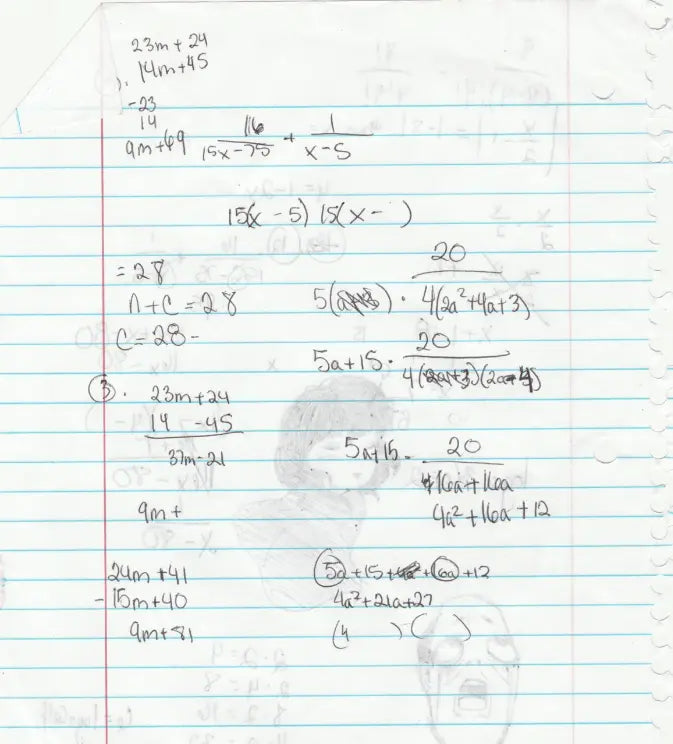 23m + 24
). 14m+45
-23
14
9m+69
116/(15x-75) + 1/(x-5)
15(x - 5) 15(x - )
= 28
n + c = 28
c = 28 -
20
5( ) · 4(2a²+4a+3)
20
5a+15 · 4(2a+3)(2a+4)
3. 23m+24
14 -45
37m-21
9m+
5a+15 - 20
16a+16a
4a²+16a+12
24m+41
-15m+40
9m+81
5a+15+4a²+16a+12
4a²+21a+27
(4 ) ( )